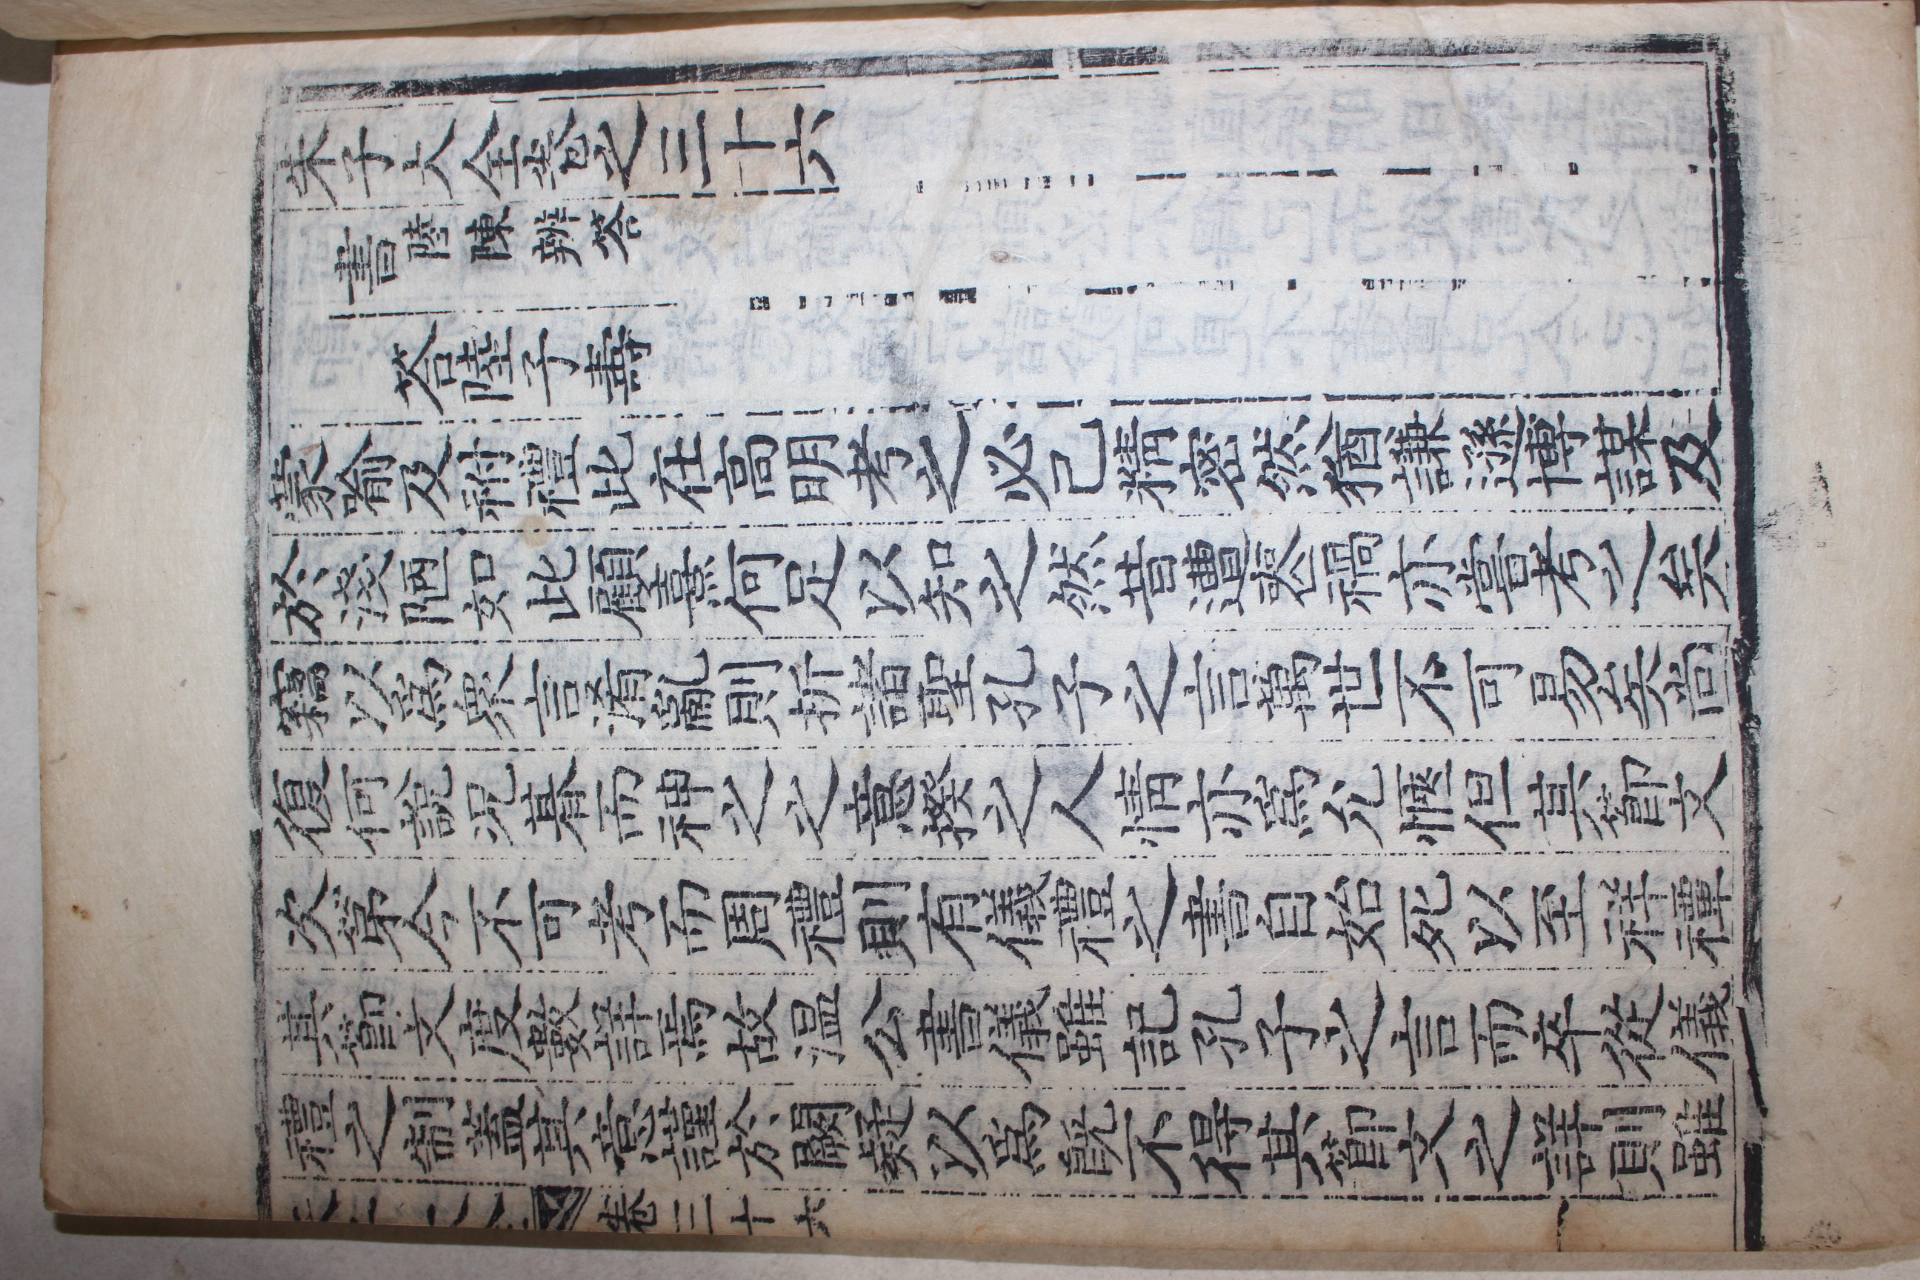 朱子大全卷之三十六
書陸陳辨答
答陸子壽
蒙喩及祔禮此在高明考之必已精密然猶謙遜博謀及
於淺陋如此顧熹何足以知之然昔遭喪禍亦嘗考之矣
竊以爲衆言淆亂則折諸聖孔子之言萬世不可易矣尚
復何說況朞而神之之意揆之人情亦爲允愜但其節文
次第今不可考而周禮則有儀禮之書自始死以至祥禫
其節文度數詳焉故溫公書儀雖記孔子之言而卒從儀
禮之制蓋其意謹於闕疑以爲旣不得其節文之詳則雖
卷三十六